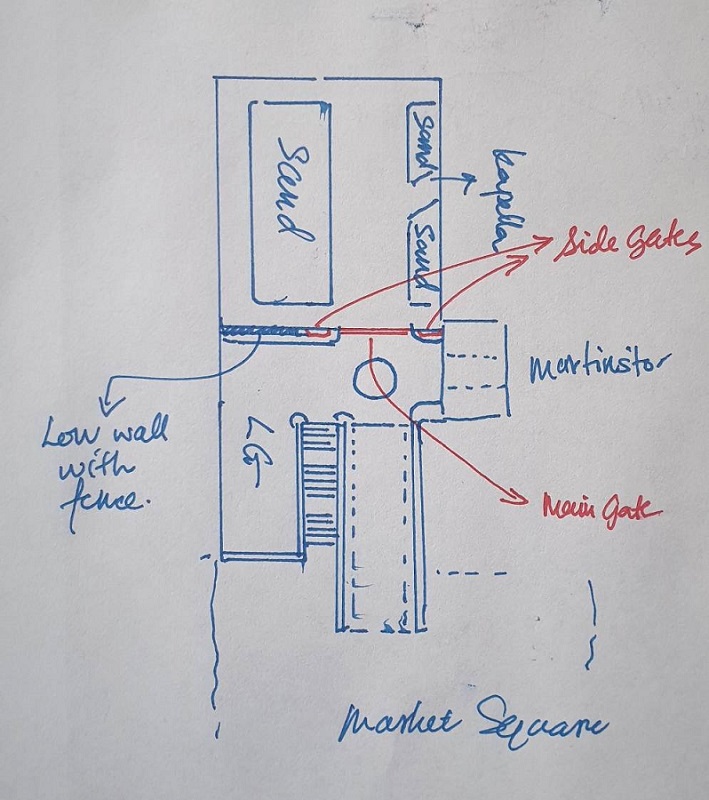 Sand
Sand
Kapella
Sand
Side Gates
Martinstor
Low wall
with
fence.
LG
Main Gate
Market Square